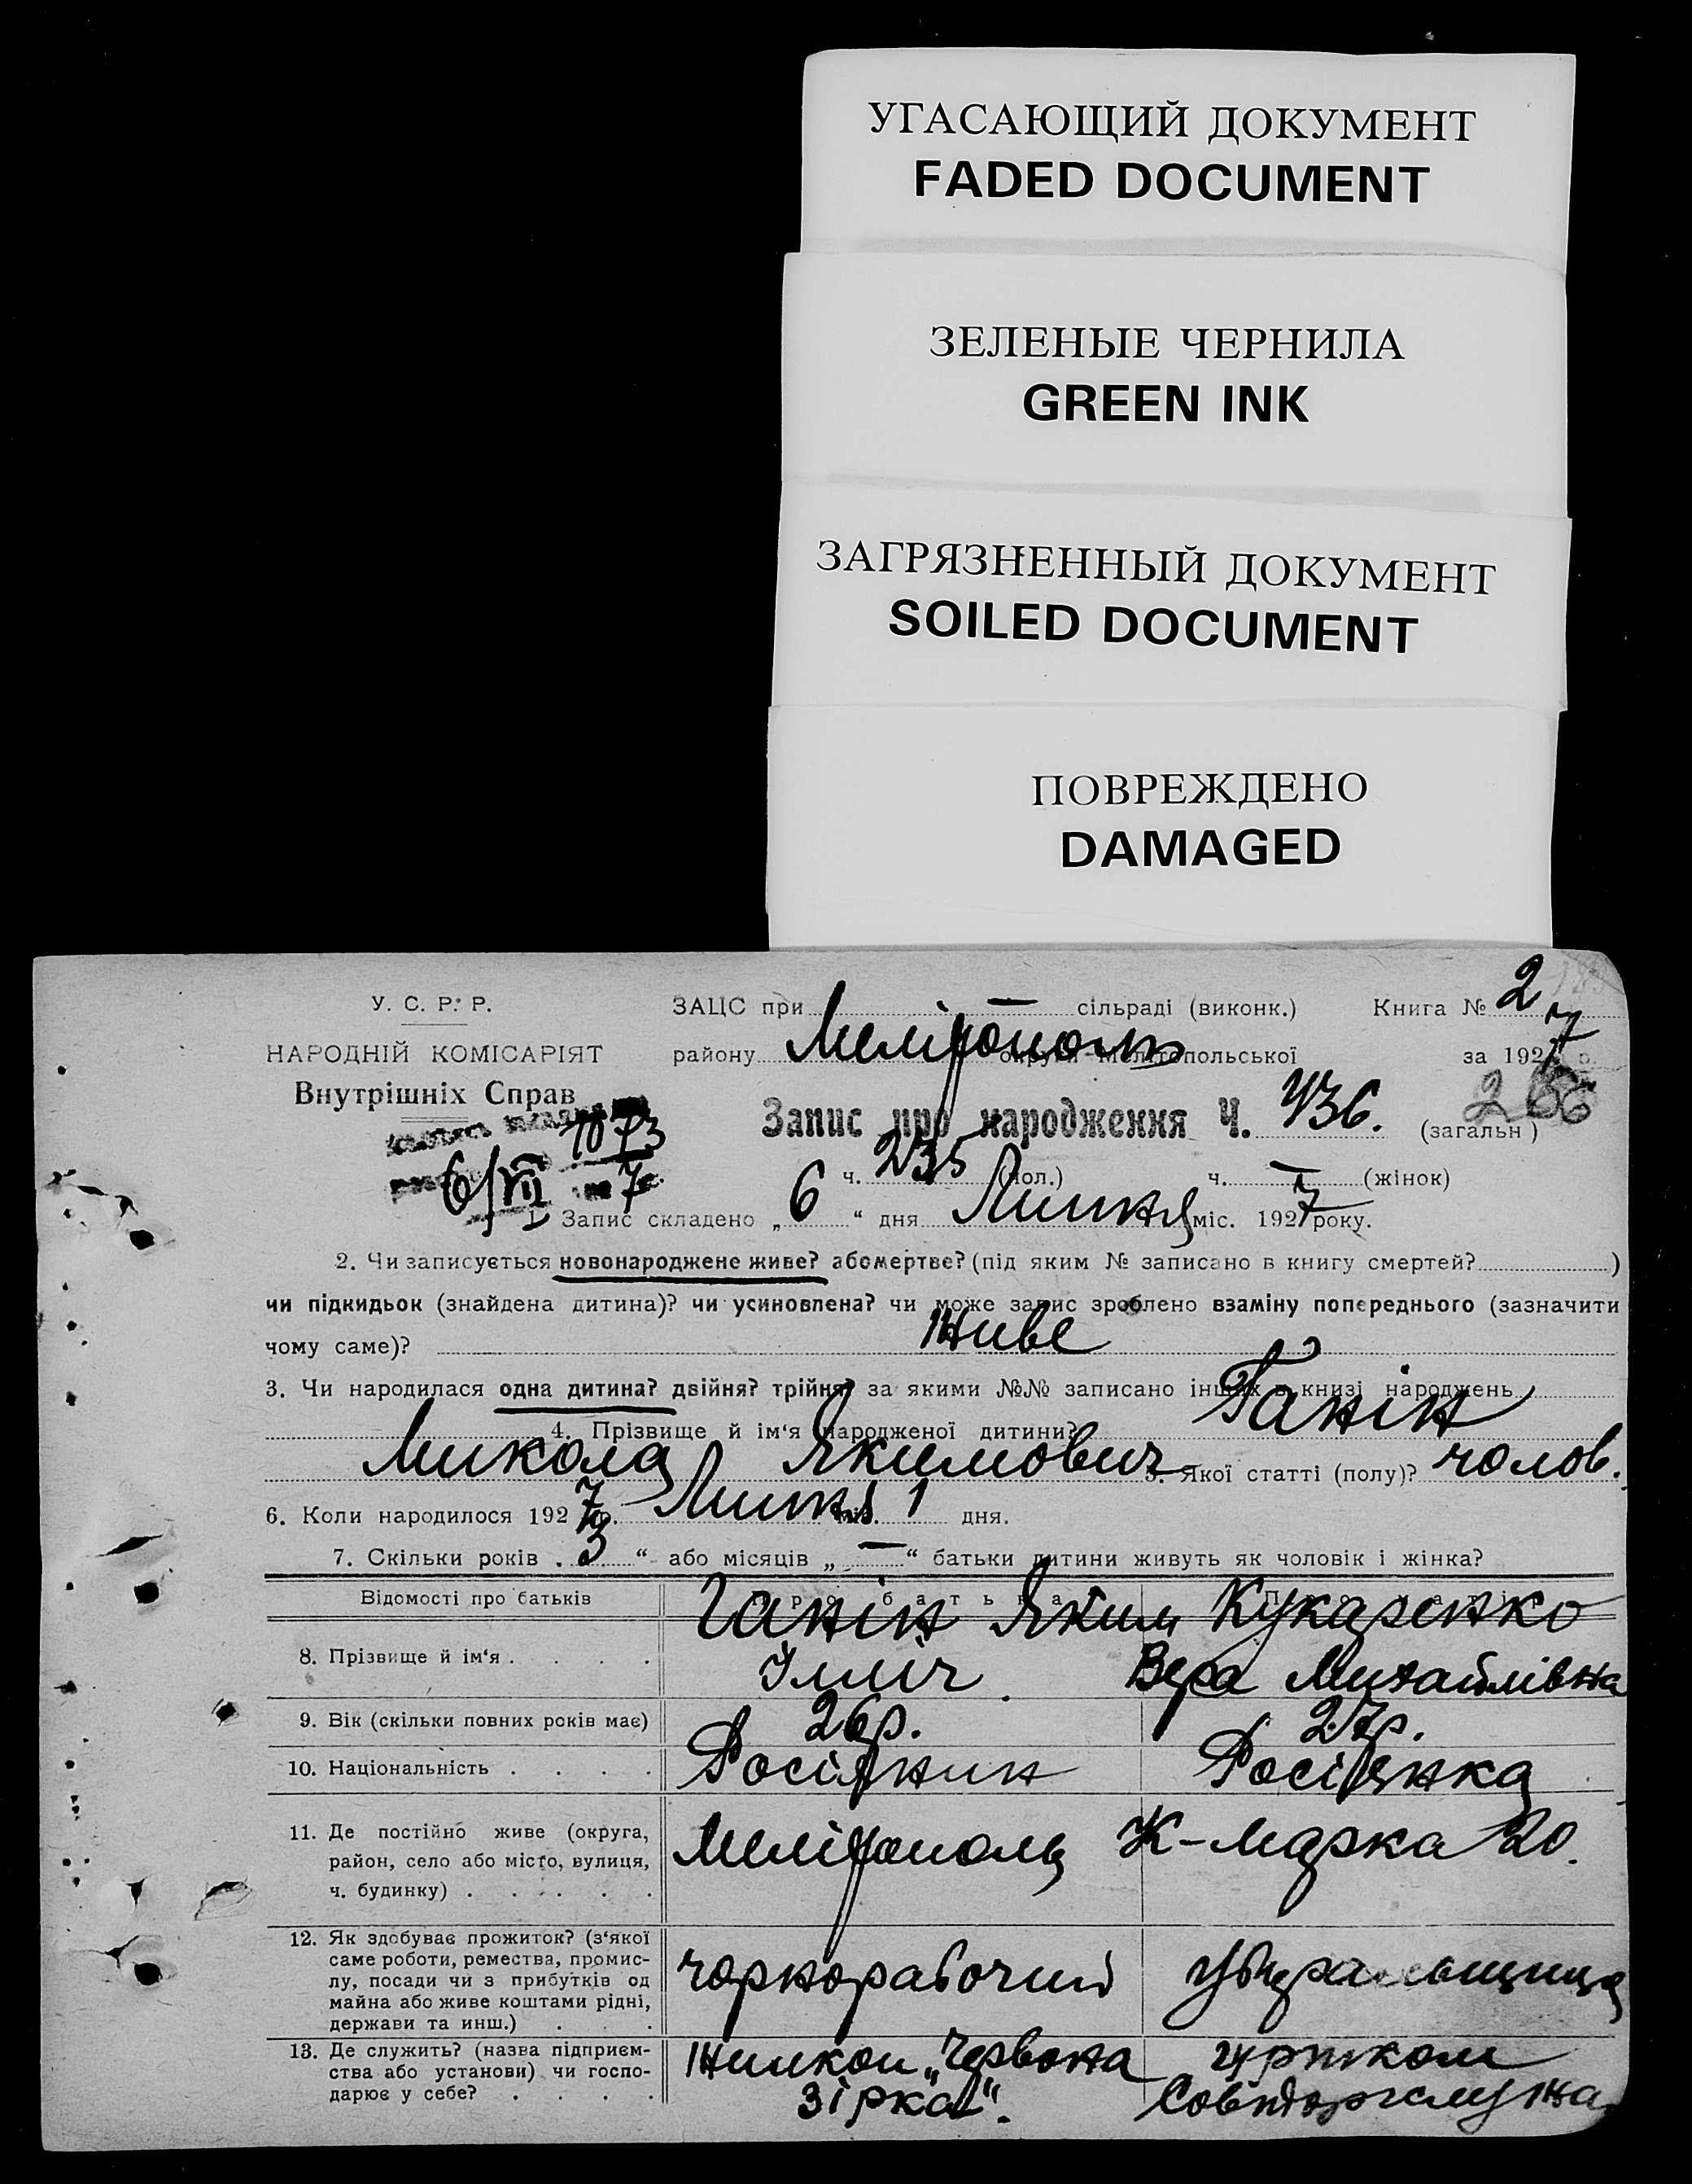 УГАСАЮЩИЙ ДОКУМЕНТ
FADED DOCUMENT
ЗЕЛЕНЫЕ ЧЕРНИЛА
GREEN INK
ЗАГРЯЗНЕННЫЙ ДОКУМЕНТ
SOILED DOCUMENT
ПОВРЕЖДЕНО
DAMAGED
У. С. Р. Р.
НАРОДНІЙ КОМІСАРІЯТ
Внутрішніх Справ
1073
6/VII 7
ЗАЦС при — сільраді (виконк.) Книга № 2
району Мелітополь округи Мелітопольської за 1927 р.
Запис про народження Ч. 436. (загальн) 266
ч. 235 (пол.) ч. — (жінок)
1. Запис складено „ 6 “ дня Липня міс. 1927 року.
2. Чи записується новонароджене живе? або мертве? (під яким № записано в книгу смертей? )
чи підкидьок (знайдена дитина)? чи усиновлена? чи може запис зроблено взаміну попереднього (зазначити
чому саме)? Живе
3. Чи народилася одна дитина? двійня? трійня? за якими №№ записано інших в книзі народжень
4. Прізвище й ім‘я народженої дитини? Ганін
Микола Якимович 5. Якої статті (полу)? чолов.
6. Коли народилося 1927 р. Липня міс. 1 дня.
7. Скільки років „ 3 “ або місяців „ — “ батьки дитини живуть як чоловік і жінка?
Відомості про батьків Про батька Про матір
8. Прізвище й ім‘я Ганін Яким Ілліч Кукаренко Вера Михайлівна
9. Вік (скільки повних років має) 26 р. 27 р.
10. Національність Росіянин Росіянка
11. Де постійно живе (округа,
район, село або місто, вулиця,
ч. будинку) Мелітополь К-Марка 20.
12. Як здобуває прожиток? (з‘якої
саме роботи, ремества, промис-
лу, посади чи з прибутків од
майна або живе коштами рідні,
держави та инш.) чорнорабочий
13. Де служить? (назва підприєм-
ства або установи) чи госпо-
дарює у себе? Жилкоп „Червона
Зірка“.